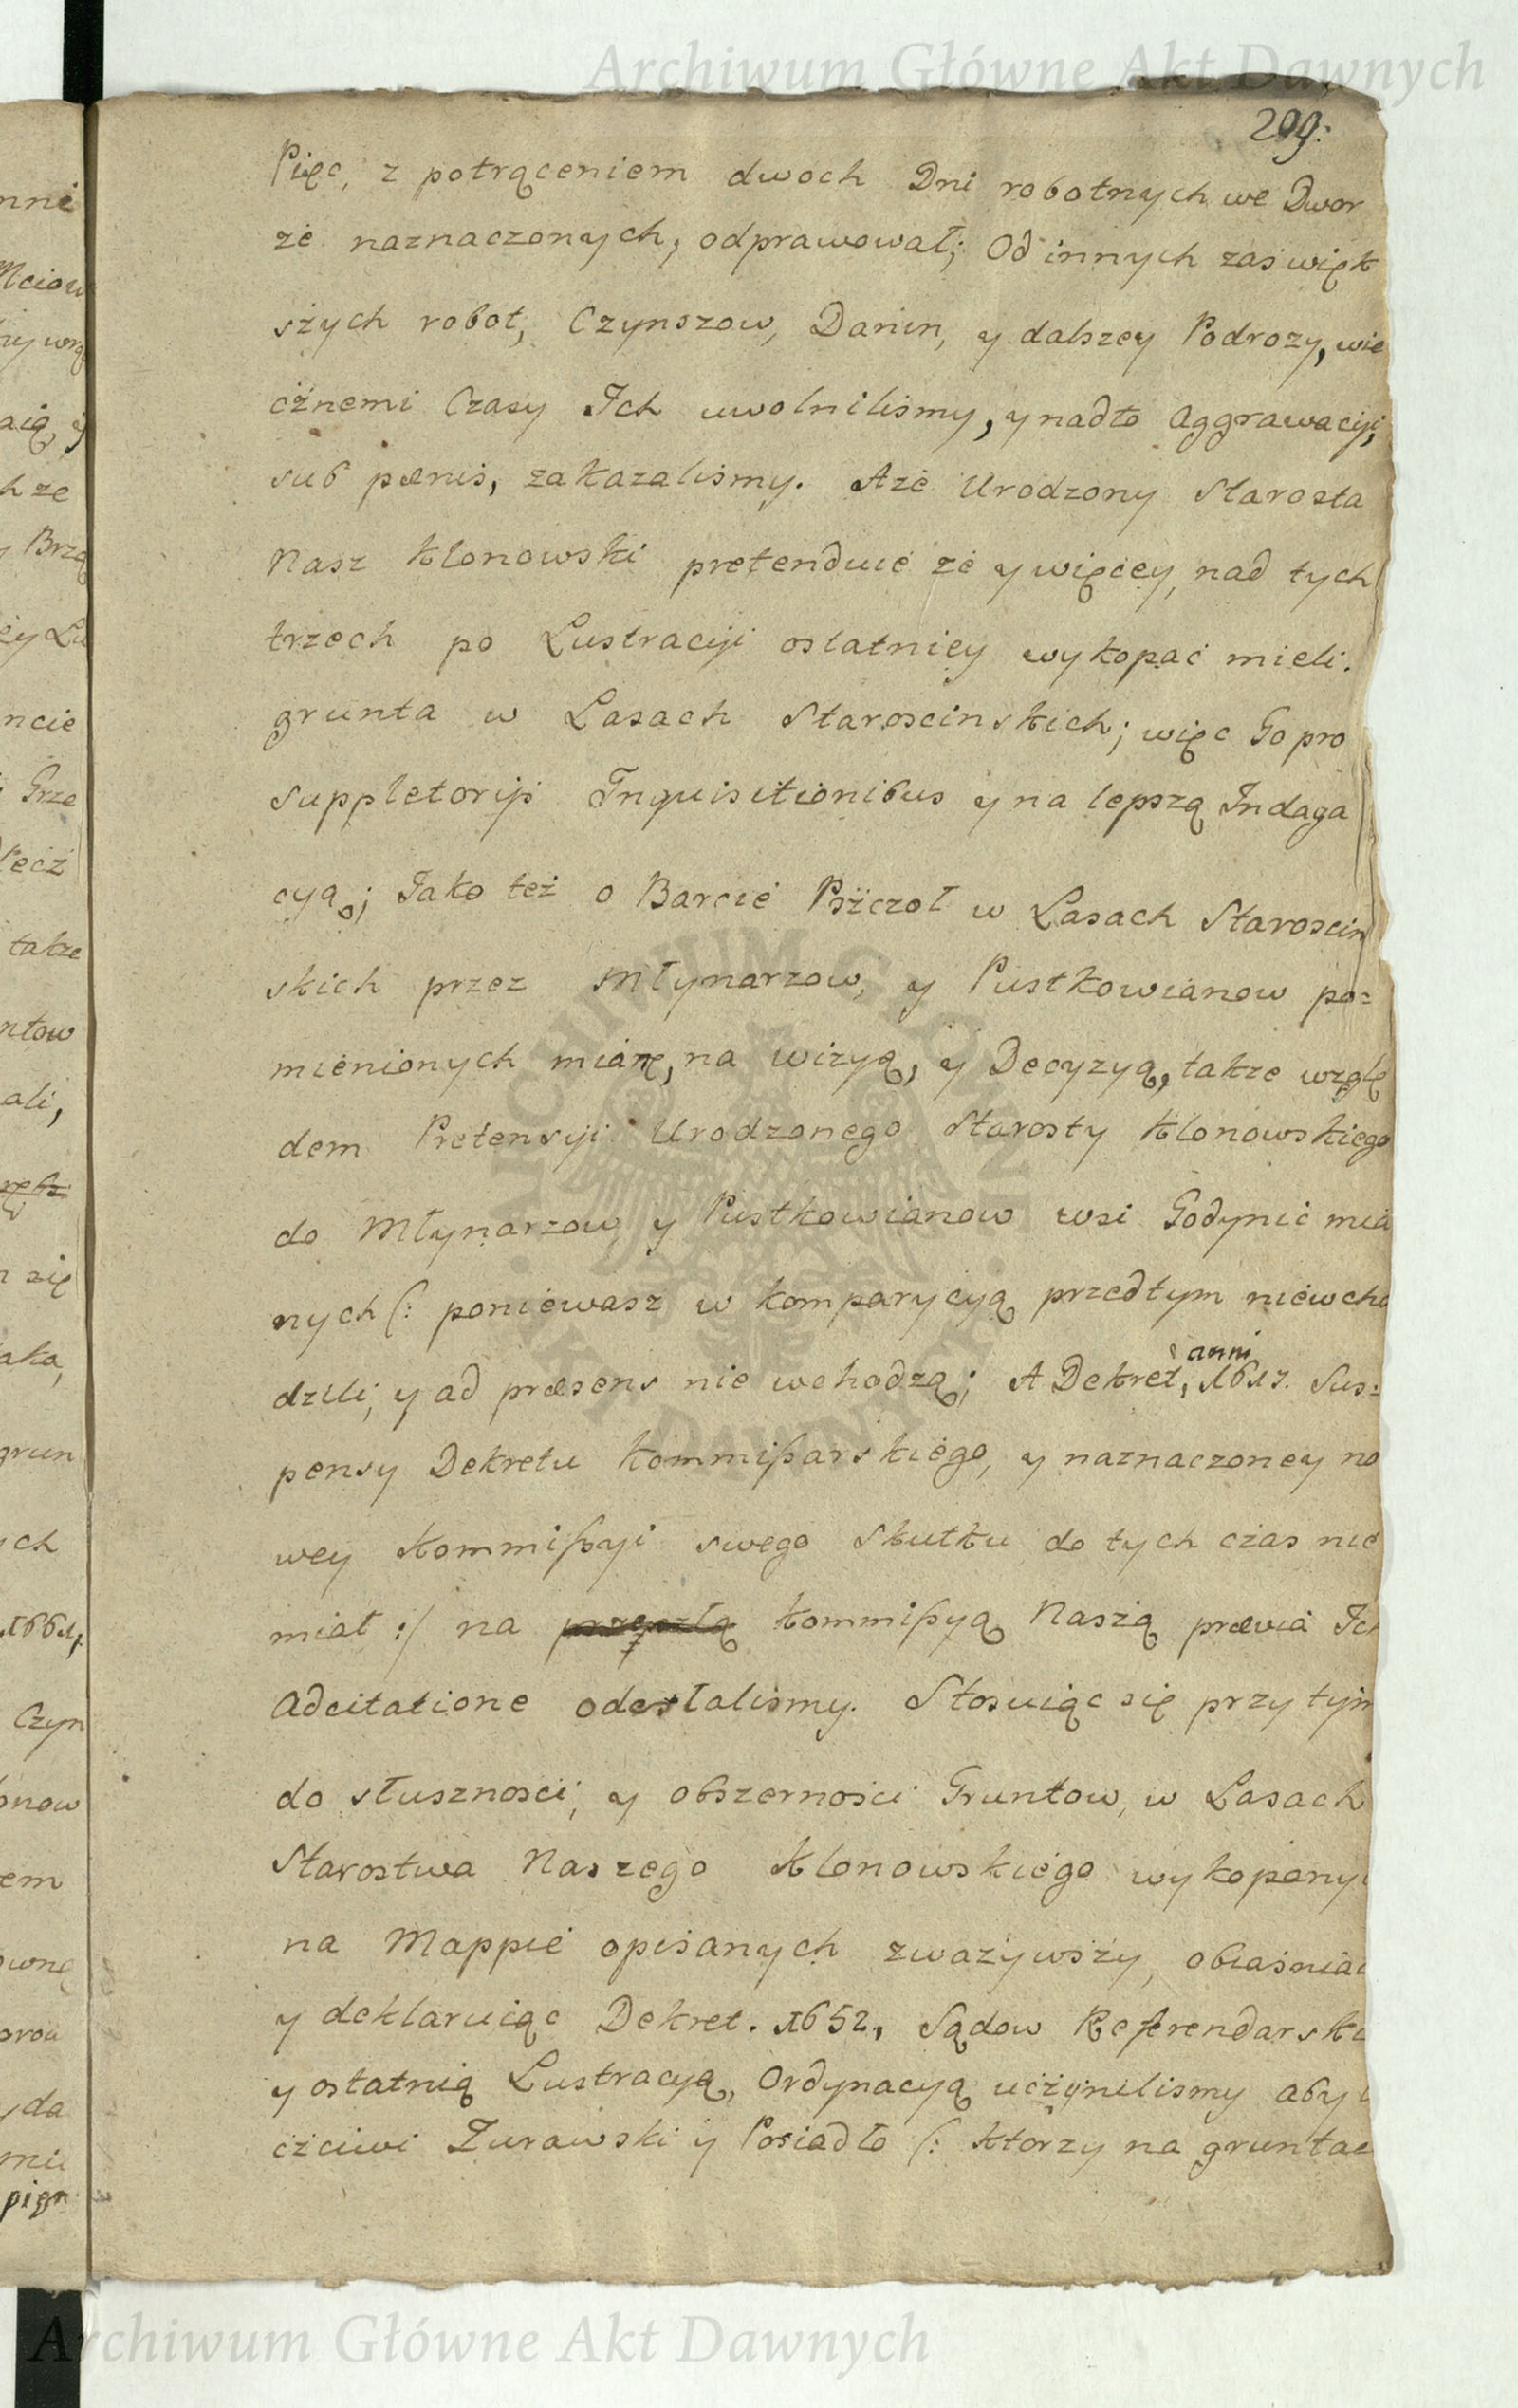 Archiwum Główne Akt Dawnych
209:
Pięc, z potrąceniem dwoch Dni robotnych we Dwor
że naznaczonych, odprawował; Od innych zaś więk
szych robot, Czynszow, Danin, y dalszey Podrozy, wie
cżnemi Czasy Ich uwolnilismy, y nadto Aggrawacyi,
sub pænis, zakazalismy. Aże Urodzony Starosta
Nasz Klonowski pretenduie że y więcey, nad tych
trzech po Lustracyi ostatniey wykopać mieli.
grunta w Lasach Staroscinskich; więc Go pro
suppletoriis Inquisitionibus y na lepszą Indaga
cyą; Iako też o Barcie Pszczoł w Lasach Staroscin
skich przez Młynarzow, y Pustkowianow po=
mienionych miane, na wizyą, y Decyzyą, także wzglę
dem Pretensyi Urodzonego Starosty Klonowskiego
do Młynarzow y Pustkowianow wsi Godynic mia
nych (: poniewasz w komparycyą przedtym niewcho
dzili, y ad præsens nie wchodzą; A Dekret, anni 1617. Sus=
pensy Dekretu Kommißarskiego, y naznaczoney no
wey Kommißyi swego Skutku do tych czas nie
miał :/ na przeszłą Kommißyą Naszą prævia Ich
Adcitatione odesłalismy. Stosuiąc się przy tym
do słusznosci, y obszernosci Gruntow, w Lasach
Starostwa Naszego Klonowskiego wykopany
na Mappie opisanych zwazywszy, obiaśniai
y deklaruiąc Dekret. 1652, Sądow Referendarski
y ostatnią Lustracyą, Ordynacyą uczynilismy aby
cżciwi Zurawski y Posiadło (: ktorzy na gruntac
nni
Mciow
aią, y
h ze
y Brzą
ey Lu
ncie
Grze
lecz
takze
ntow
ali,
się
aka,
grun
ych
1661,
Czyn
onow
em
owną
yda
mii
Archiwum Główne Akt Dawnych